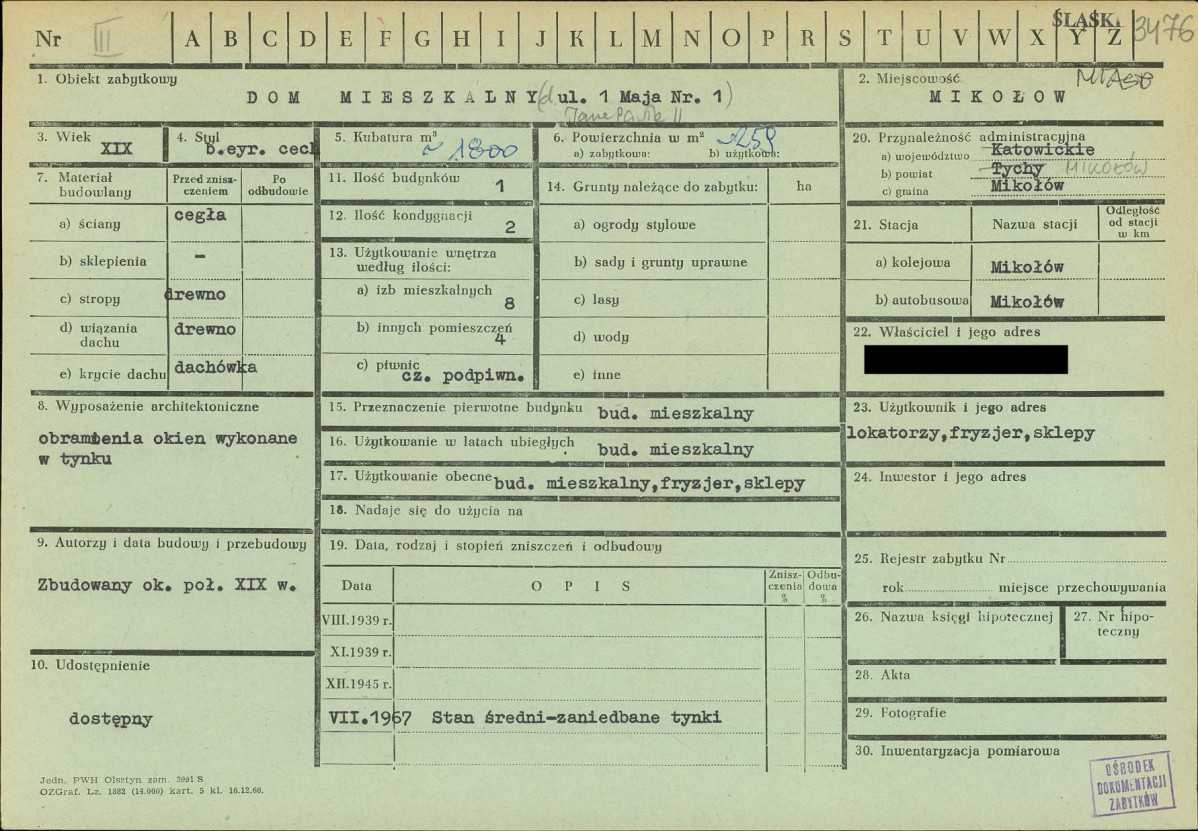 Nr III A B C D E F G H I J K L M N O P R S T U V W X Y Z ŚLĄSK. 3476
1. Obiekt zabytkowy
DOM MIESZKALNY (d. ul. 1 Maja Nr. 1)
Jana Pawła II
2. Miejscowość MIASTO
MIKOŁOW
3. Wiek
XIX
4. Styl
b.eyr. cech
5. Kubatura m³
~ 1800
6. Powierzchnia w m²
a) zabytkowa: b) użytkowa:
~259
20. Przynależność administracyjna
a) województwo Katowickie
b) powiat Tychy MIKOŁÓW
c) gmina Mikołów
7. Materiał budowlany
Przed znisz-
czeniem
Po
odbudowie
a) ściany cegła
b) sklepienia –
c) stropy drewno
d) wiązania
dachu drewno
e) krycie dachu dachówka
11. Ilość budynków 1
12. Ilość kondygnacji 2
13. Użytkowanie wnętrza
według ilości:
a) izb mieszkalnych 8
b) innych pomieszczeń 4
c) piwnic cz. podpiwn.
14. Grunty należące do zabytku: ha
a) ogrody stylowe
b) sady i grunty uprawne
c) lasy
d) wody
e) inne
21. Stacja Nazwa stacji
Odległość
od stacji
w km
a) kolejowa Mikołów
b) autobusowa Mikołów
22. Właściciel i jego adres
8. Wyposażenie architektoniczne
obramienia okien wykonane
w tynku
15. Przeznaczenie pierwotne budynku bud. mieszkalny
16. Użytkowanie w latach ubiegłych bud. mieszkalny
17. Użytkowanie obecne bud. mieszkalny,fryzjer,sklepy
18. Nadaje się do użycia na
23. Użytkownik i jego adres
lokatorzy,fryzjer,sklepy
24. Inwestor i jego adres
9. Autorzy i data budowy i przebudowy
Zbudowany ok. poł. XIX w.
10. Udostępnienie
dostępny
19. Data, rodzaj i stopień zniszczeń i odbudowy
Data OPIS
Znisz-
czenia
%
Odbu-
dowa
%
VIII.1939 r.
XI.1939 r.
XII.1945 r.
VII.1967 Stan średni-zaniedbane tynki
25. Rejestr zabytku Nr
rok miejsce przechowywania
26. Nazwa księgi hipotecznej
27. Nr hipo-
teczny
28. Akta
29. Fotografie
30. Inwentaryzacja pomiarowa
OŚRODEK
DOKUMENTACJI
ZABYTKÓW
Jedn. PWH Olsztyn zam. 3991 S
OZGraf. Lz. 1882 (14.000) kart. 5 kl. 16.12.66.